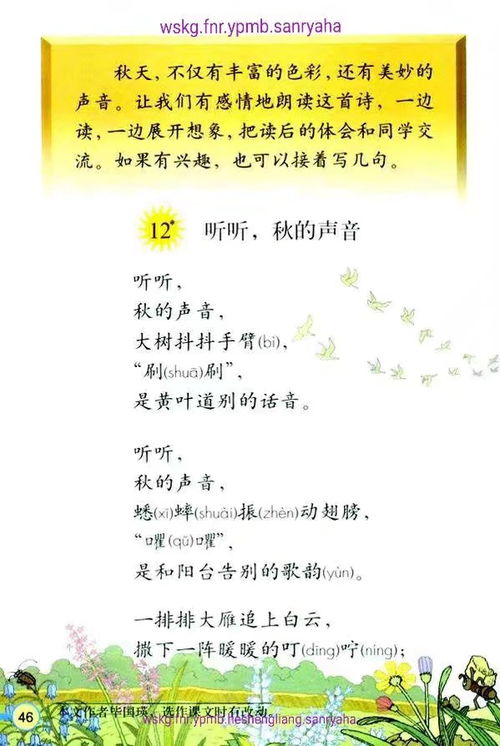 wskg.fnr.ypmb.sanryaha
秋天，不仅有丰富的色彩，还有美妙的
声音。让我们有感情地朗读这首诗，一边
读，一边展开想象，把读后的体会和同学交
流。如果有兴趣，也可以接着写几句。
12* 听听，秋的声音
听听，
秋的声音，
大树抖抖手臂(bì)，
“刷(shuā)刷”，
是黄叶道别的话音。
听听，
秋的声音，
蟋(xī)蟀(shuài)振(zhèn)动翅膀，
“㘗(qū)㘗”，
是和阳台告别的歌韵(yùn)。
一排排大雁追上白云，
撒下一阵暖暖的叮(dīng)咛(níng)；
本文作者毕国瑛，选作课文时有改动。
46
wskg.fnr.ypmb.heshengliang.sanryaha